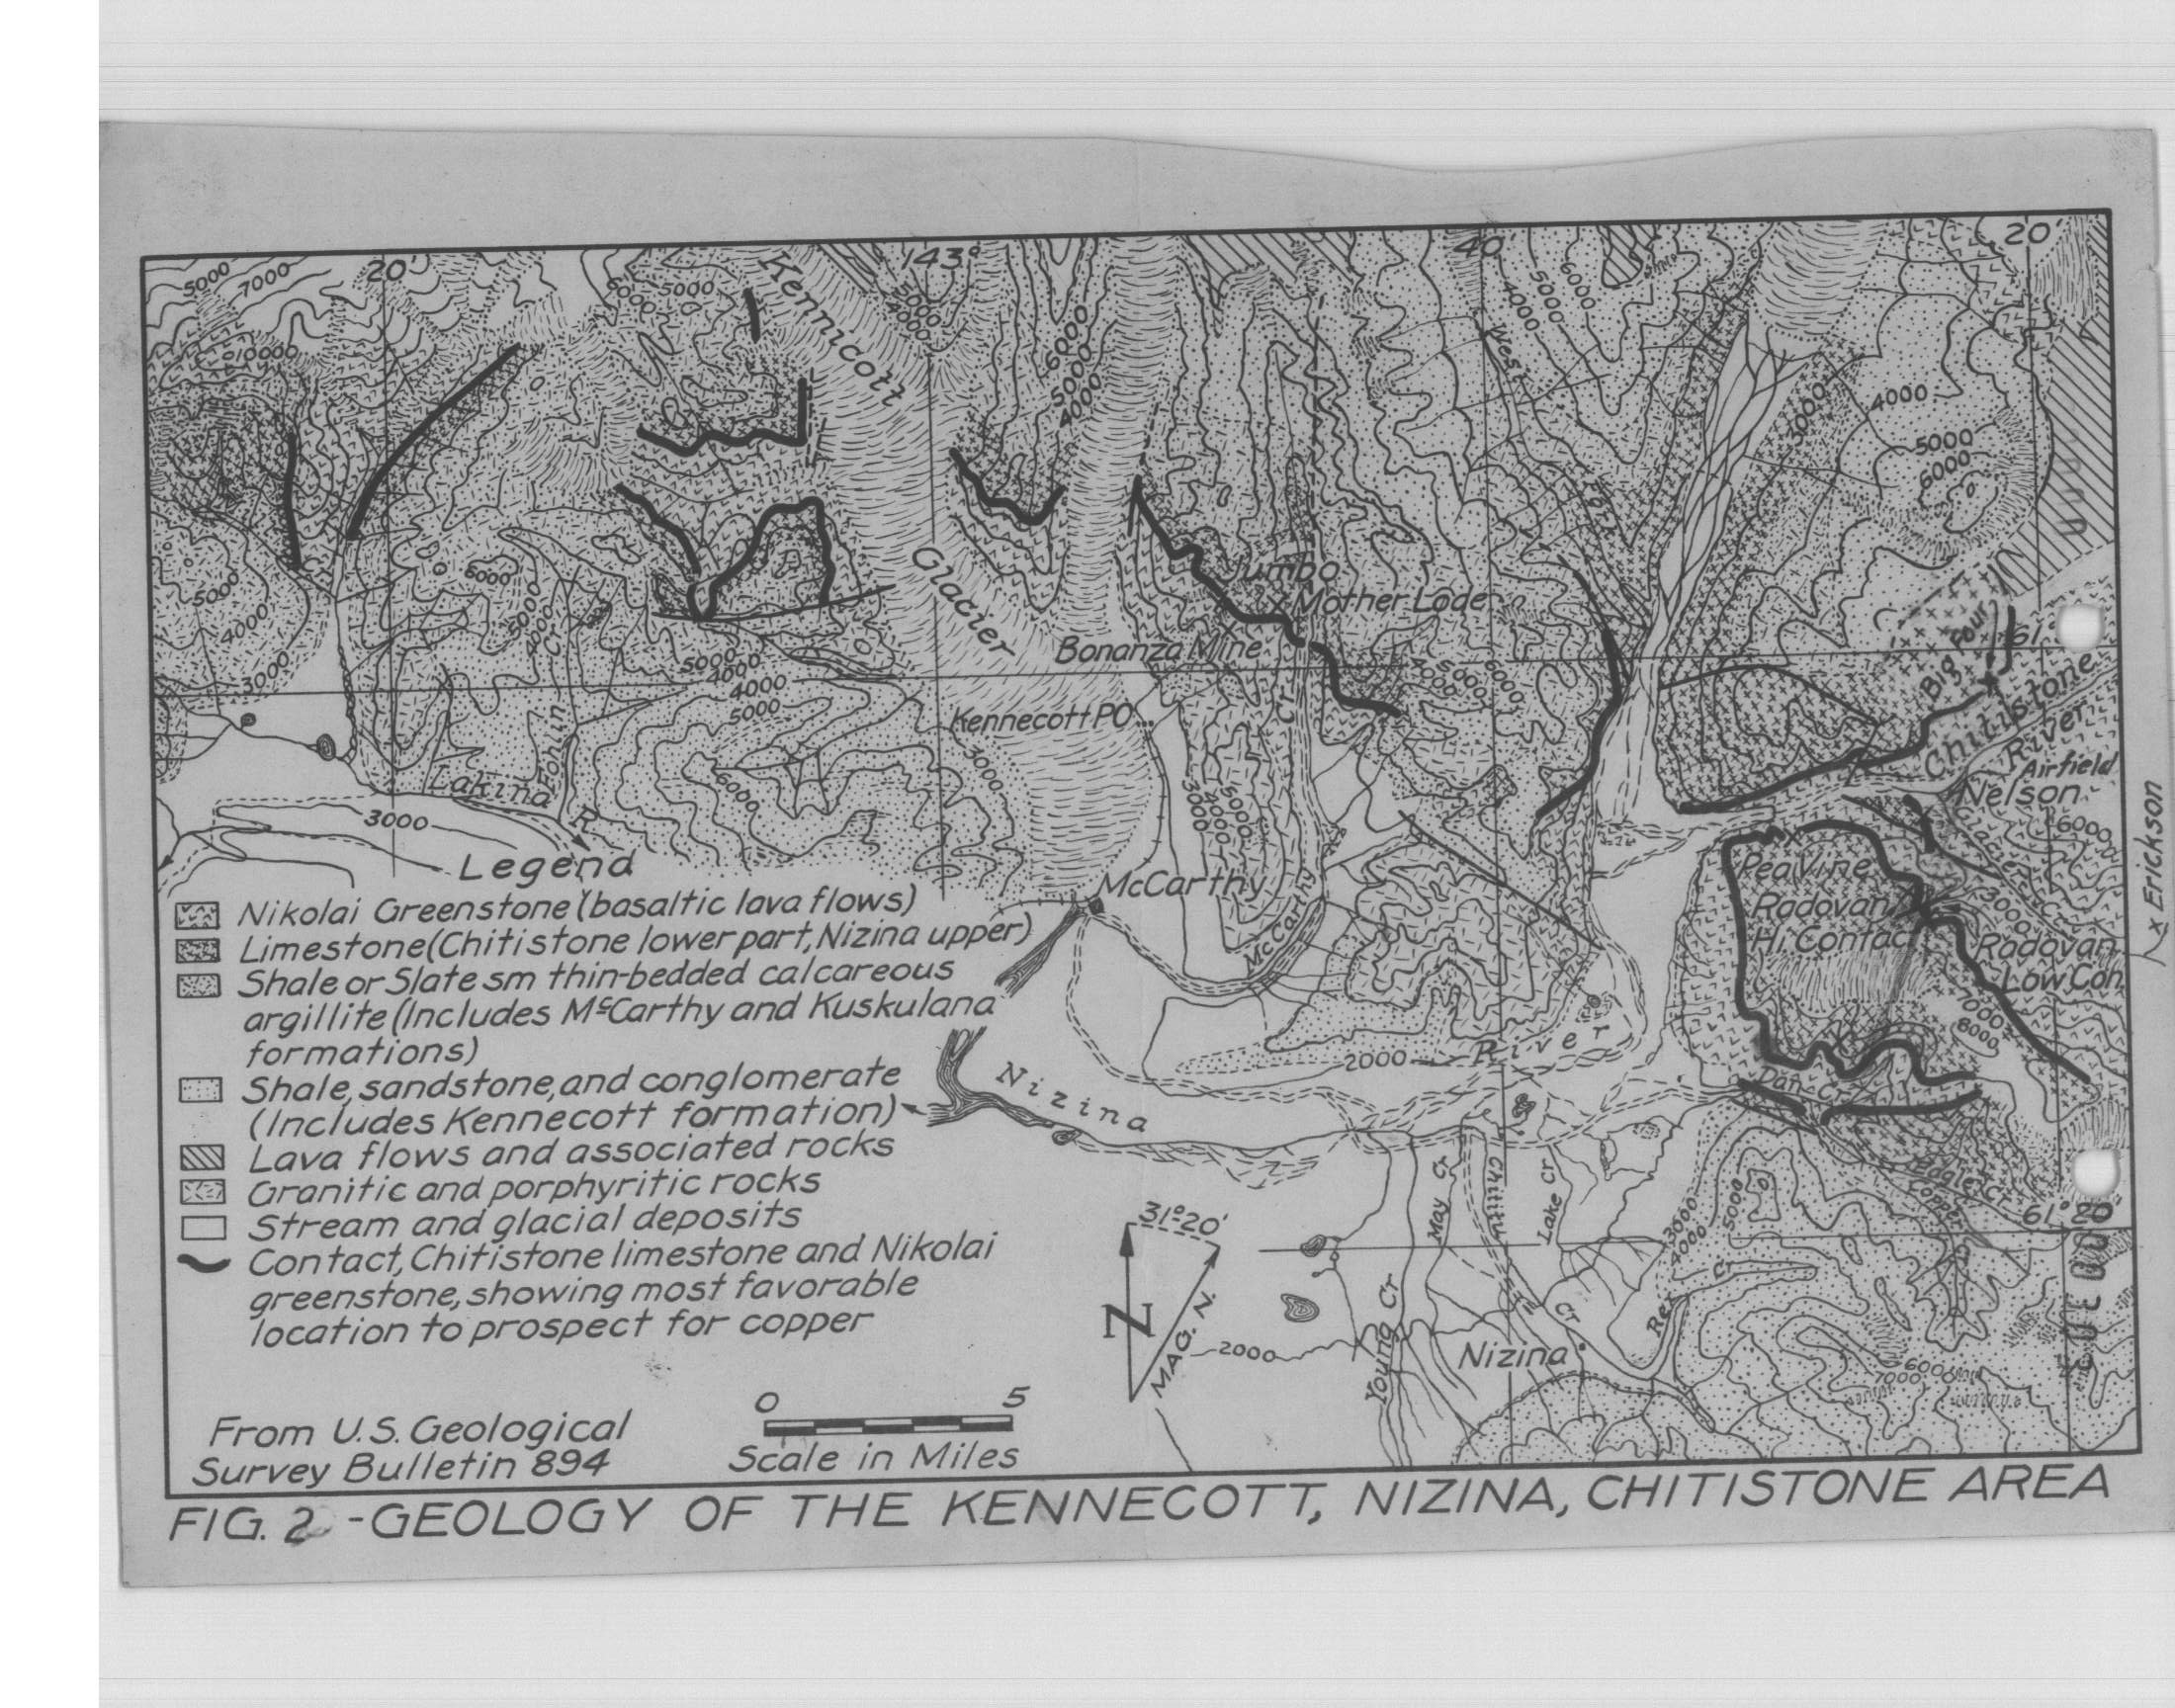 5000
7000
20'
Kennicott
143°
40'
20'
5000
5000
4000
6000
5000
4000
5000
4000
6000
West
10000
3000
4000
5000
6000
6000
5000
4000
4000
3000
Cr
5000
4000
5000
Glacier
Jumbo
Mother Lode
Bonanza Mine
4000
5000
6000
Big Four
61°
Chitistone
River
Kennecott PO
Cr
3000
6000
3000
4000
5000
Airfield
Nelson
6000
Glacier Cr
3000
x Erickson
Lakina
R
Fohlin
3000
McCarthy
McCarthy
Pea Vine
Radovan
Hi. Contact
Radovan
Low Con
7000
Legend
Nikolai Greenstone (basaltic lava flows)
Limestone (Chitistone lower part, Nizina upper)
Shale or Slate sm thin-bedded calcareous
argillite (Includes McCarthy and Kuskulana
formations)
Shale, sandstone, and conglomerate
(Includes Kennecott formation)
Lava flows and associated rocks
Granitic and porphyritic rocks
Stream and glacial deposits
Contact, Chitistone limestone and Nikolai
greenstone, showing most favorable
location to prospect for copper
Nizina
2000
River
Dan Cr
May Cr
Chititu
Cr
Lake Cr
Young Cr
Rex
Cr
Copper
3000
4000
5000
61° 20'
31° 20'
N
MAG. N.
2000
Nizina
6000
7000
From U.S. Geological
Survey Bulletin 894
0 5
Scale in Miles
FIG. 2 - GEOLOGY OF THE KENNECOTT, NIZINA, CHITISTONE AREA